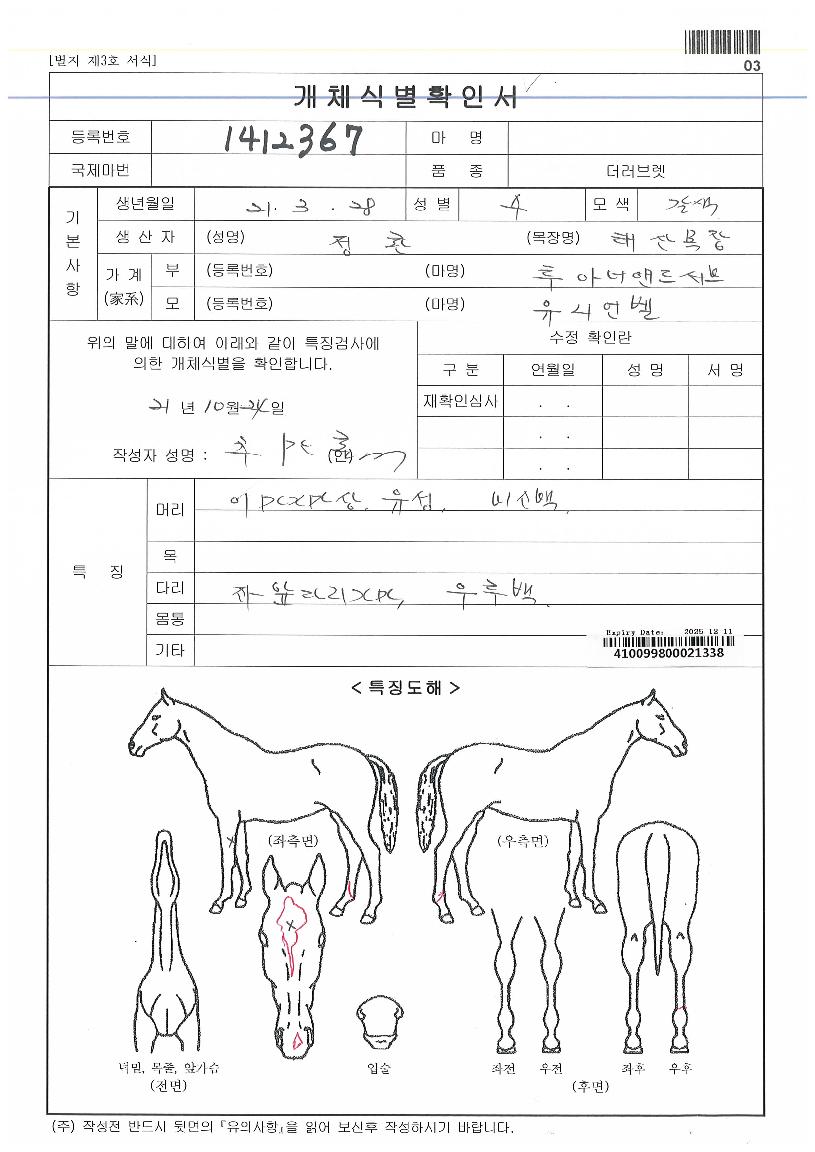 [별지 제3호 서식]
03
개체식별확인서
등록번호 1412367 마 명
국제마번 품 종 더러브렛
기본사항
생년월일 21. 3. 28 성별 수 모색 갈색
생산자 (성명) 정 훈 (목장명) 태산목장
가계 (家系) 부 (등록번호) (마명) 후아너앤드서브
모 (등록번호) (마명) 유시언벨
위의 말에 대하여 아래와 같이 특징검사에
의한 개체식별을 확인합니다.
21 년 10월 24일
작성자 성명 : (인)
수정 확인란
구 분 연월일 성 명 서 명
재확인심사 . .
. .
. .
특 징
머리 유성, 비소백.
목
다리 우후백.
몸통
기타
Expiry Date: 2025 12 11
410099800021338
< 특징도해 >
(좌측면) (우측면)
너밑, 목줄, 앞가슴
(전면)
입술
좌전 우전 좌후 우후
(후면)
(주) 작성전 반드시 뒷면의 『유의사항』을 읽어 보신후 작성하시기 바랍니다.